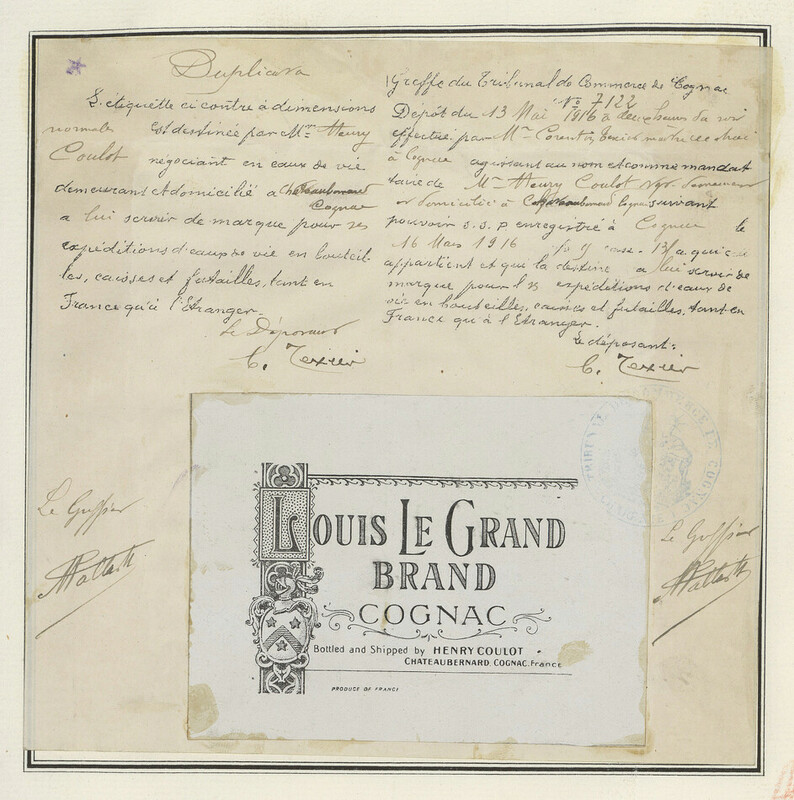 Duplicata
L'étiquette ci contre à dimensions
normales est destinée par Mr Henry
Coulot négociant en eaux de vie
demeurant et domicilié à Chateaubernard
Cognac
a lui servir de marque pour ses
expéditions d'eaux de vie en bouteil-
les, caisses et futailles, tant en
France qu'à l'Etranger.
Le Déposant
C. Texier
Greffe du Tribunal de Commerce de Cognac
No 7122
Dépôt du 13 Mai 1916 à deux heures du soir
effectué par Mr
à Cognac agissant au nom et comme manda-
taire de Mr Henry Coulot demeurant
et domicilié à Chateaubernard Cognac suivant
pouvoir s.s.p enregistré à Cognac le
16 Mars 1916 a qui
appartient et qui la destine a lui servir de
marque pour ses expéditions d'eaux de
vie en bouteilles, caisses et futailles, tant en
France qu'à l'Etranger.
Le déposant:
C. Texier
TRIBUNAL DE COMMERCE DE COGNAC
Le Greffier
Le Greffier
LOUIS LE GRAND
BRAND
COGNAC
Bottled and Shipped by HENRY COULOT
CHATEAUBERNARD, COGNAC, France
PRODUCE OF FRANCE